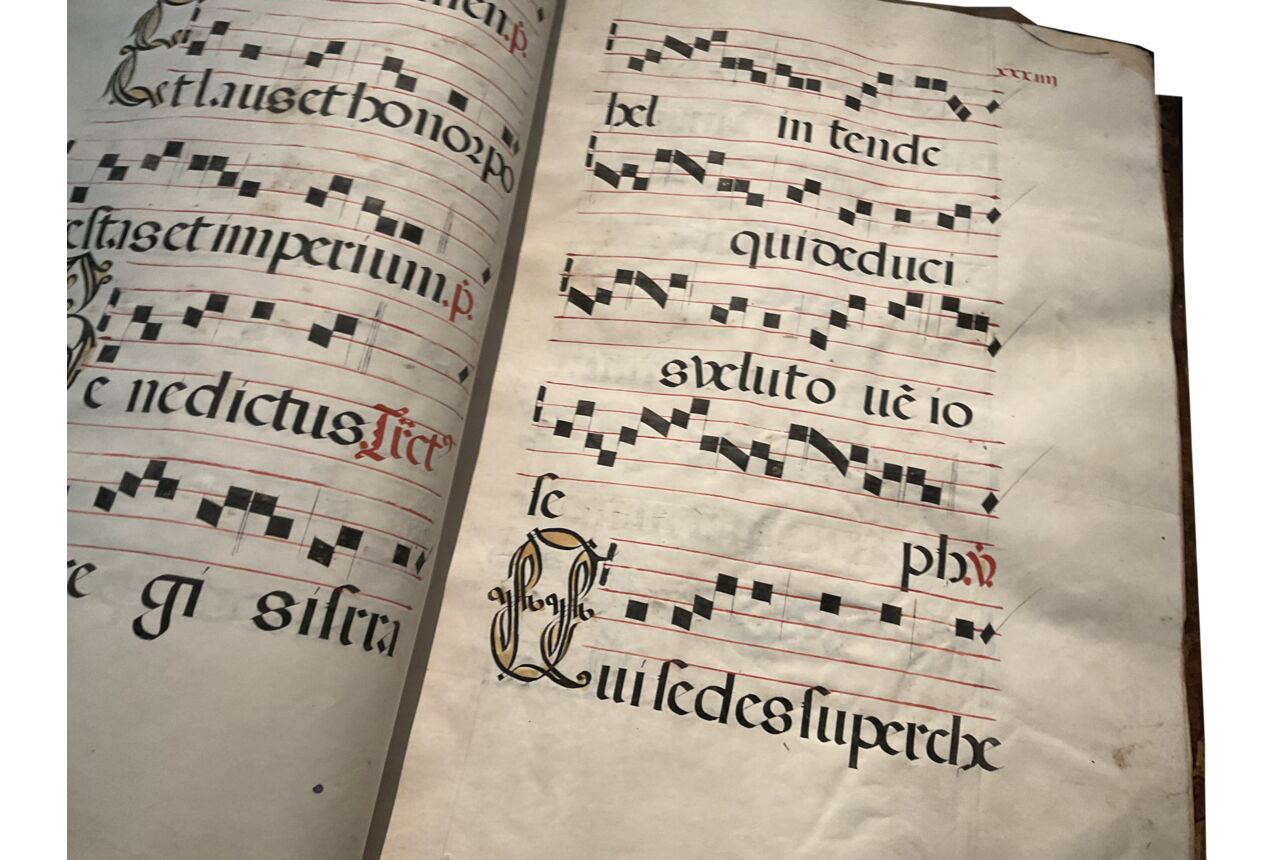 men. p̄.
Et laus et honor po
estas et imperium. p̄.
Be nedictus. Trct⁹
re gi sisrra
xxxiiij
hel in tende
qui deduci
s velut o uē io
se
ph. v̄.
Qui sedes super che